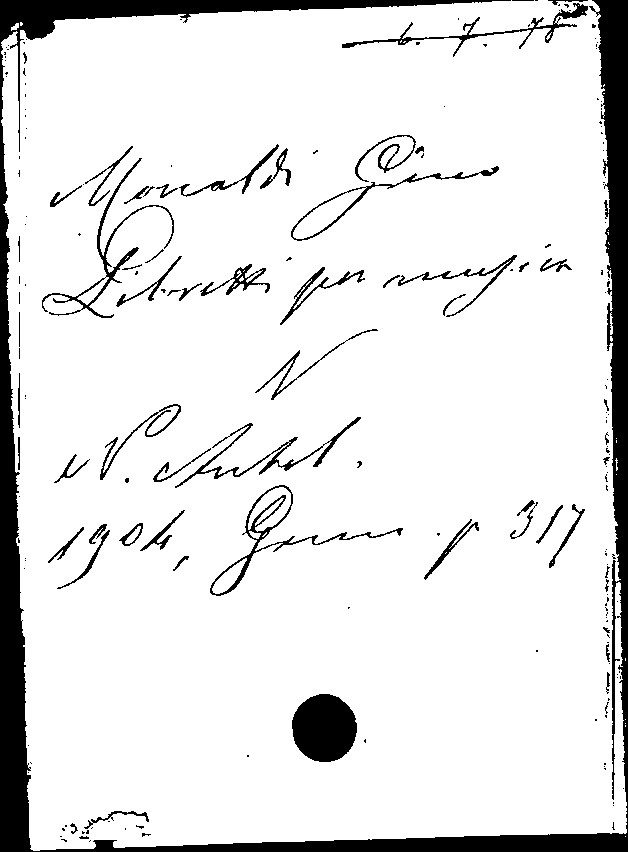 6. 7. 78
Monaldi Gino
Libretti per musica
V
N. Antol.
1904, Genn. p 317